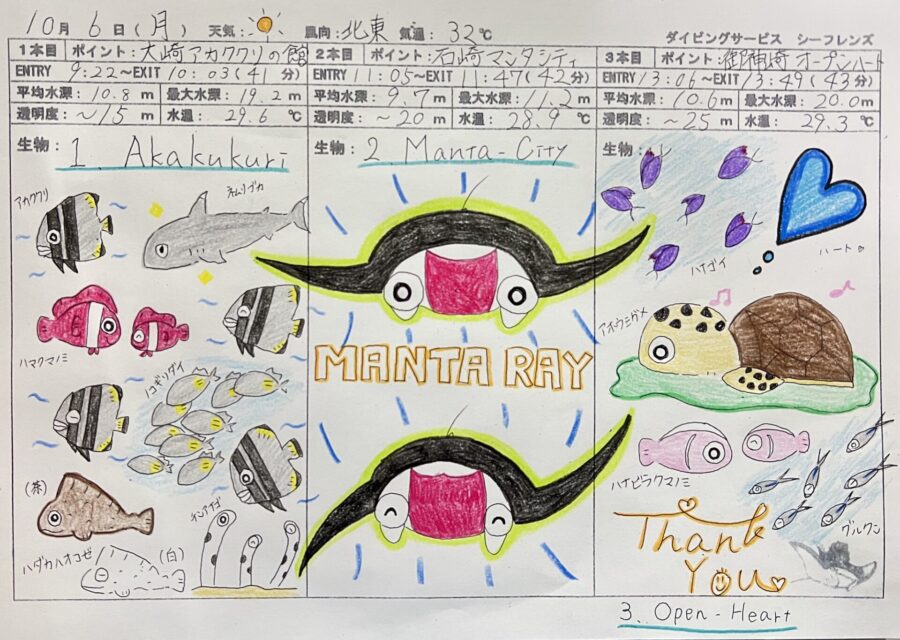 10月 6日(月) 天気: 風向: 北東 気温: 32℃
ダイビングサービス シーフレンズ
1本目 ポイント: 大崎アカククリの館
ENTRY 9:22~EXIT 10:03(41分)
平均水深: 10.8 m 最大水深: 19.2 m
透明度: ~15 m 水温: 29.6 ℃
生物: 1. Akakukuri
アカククリ
ネムリブカ
ハマクマノミ
ノコギリダイ
(茶)
チンアナゴ
ハダカハオコゼ
(白)
2本目 ポイント: 石崎マンタシティ
ENTRY 11:05~EXIT 11:47(42分)
平均水深: 9.7 m 最大水深: 11.2 m
透明度: ~20 m 水温: 28.9 ℃
生物: 2 Manta-City
MANTA RAY
3本目 ポイント: 御神崎 オープンハート
ENTRY 13:06~EXIT 13:49(43分)
平均水深: 10.6 m 最大水深: 20.0 m
透明度: ~25 m 水温: 29.3 ℃
生物:
ハナゴイ
アオウミガメ
ハナビラクマノミ
グルクン
Thank
You
3. Open-Heart